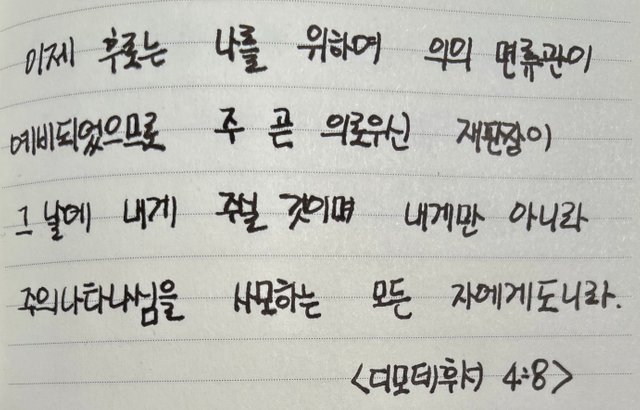 이제 후롯는 나를 위하여 의의 면류관이
예비되었으므로 주 곧 의로우신 재판장이
그 날에 내게 주실 것이며 내게만 아니라
주의나타나심을 사모하는 모든 자에게도니라.
<디모데후서 4:8>